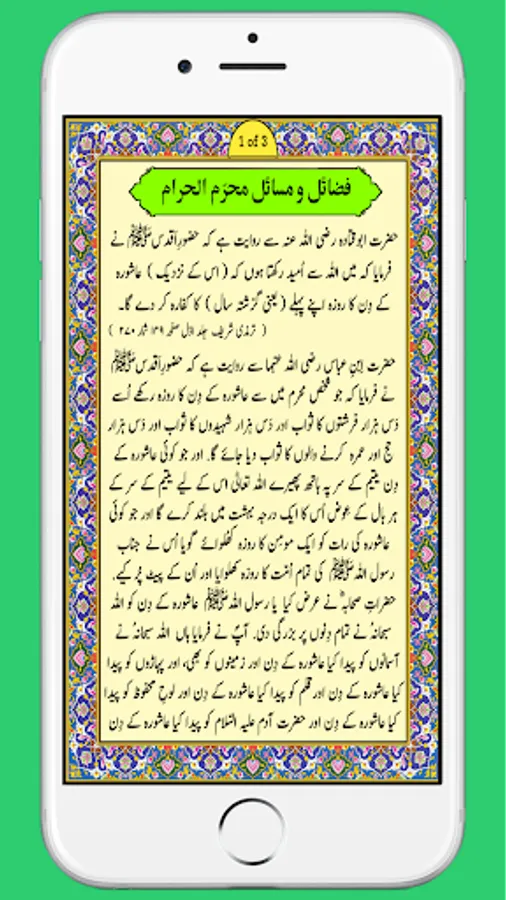 1 of 3
فضائل و مسائل محرّم الحرام
حضرت ابوقتادہ رضی اللہ عنہ سے روایت ہے کہ حضورِاقدسﷺ نے
فرمایا کہ میں اللہ سے اُمید رکھتا ہوں کہ ( اس کے نزدیک ) عاشورہ
کے دِن کا روزہ اپنے پہلے ( یعنی گزشتہ سال ) کا کفارہ کر دے گا۔
( ترمذی شریف جلد اوّل صفحہ ۱۳۹ شمار ۲۷۰ )
حضرت اِبنِ عباس رضی اللہ عنہما سے روایت ہے کہ حضورِاقدسﷺ
نے فرمایا کہ جو شخص محرم میں سے عاشورہ کے دِن کا روزہ رکھے اُسے
دَس ہزار فرشتوں کا ثواب اور دَس ہزار شہیدوں کا ثواب اور دَس ہزار
حج اور عمرہ کرنے والوں کا ثواب دیا جائے گا۔ اور جو کوئی عاشورہ کے
دِن یتیم کے سر پہ ہاتھ پھیرے اللہ تعالٰی اس کے لیے یتیم کے سر کے
ہر بال کے عوض اُس کا ایک درجہ بہشت میں بلند کرے گا اور جو کوئی
عاشورہ کی رات کو ایک مومِن کا روزہ کھلوائے گویا اُس نے جناب
رسول اللہﷺ کی تمام اُمت کا روزہ کھلوایا اور اُن کے پیٹ پُر کیے۔
حضراتِ صحابہؓ نے عرض کیا یا رسول اللہﷺ عاشورہ کے دِن کو اللہ
سبحانہٗ نے تمام دِنوں پر بزرگی دی۔ آپؐ نے فرمایا ہاں اللہ سبحانہٗ نے
آسمانوں کو پیدا کیا عاشورہ کے دِن اور زمینوں کو بھی، اور پہاڑوں کو پیدا
کیا عاشورہ کے دِن اور قلم کو پیدا کیا عاشورہ کے دِن اور لوحِ محفوظ کو پیدا
کیا عاشورہ کے دِن اور حضرت آدم علیہ السّلام کو پیدا کیا عاشورہ کے دِن